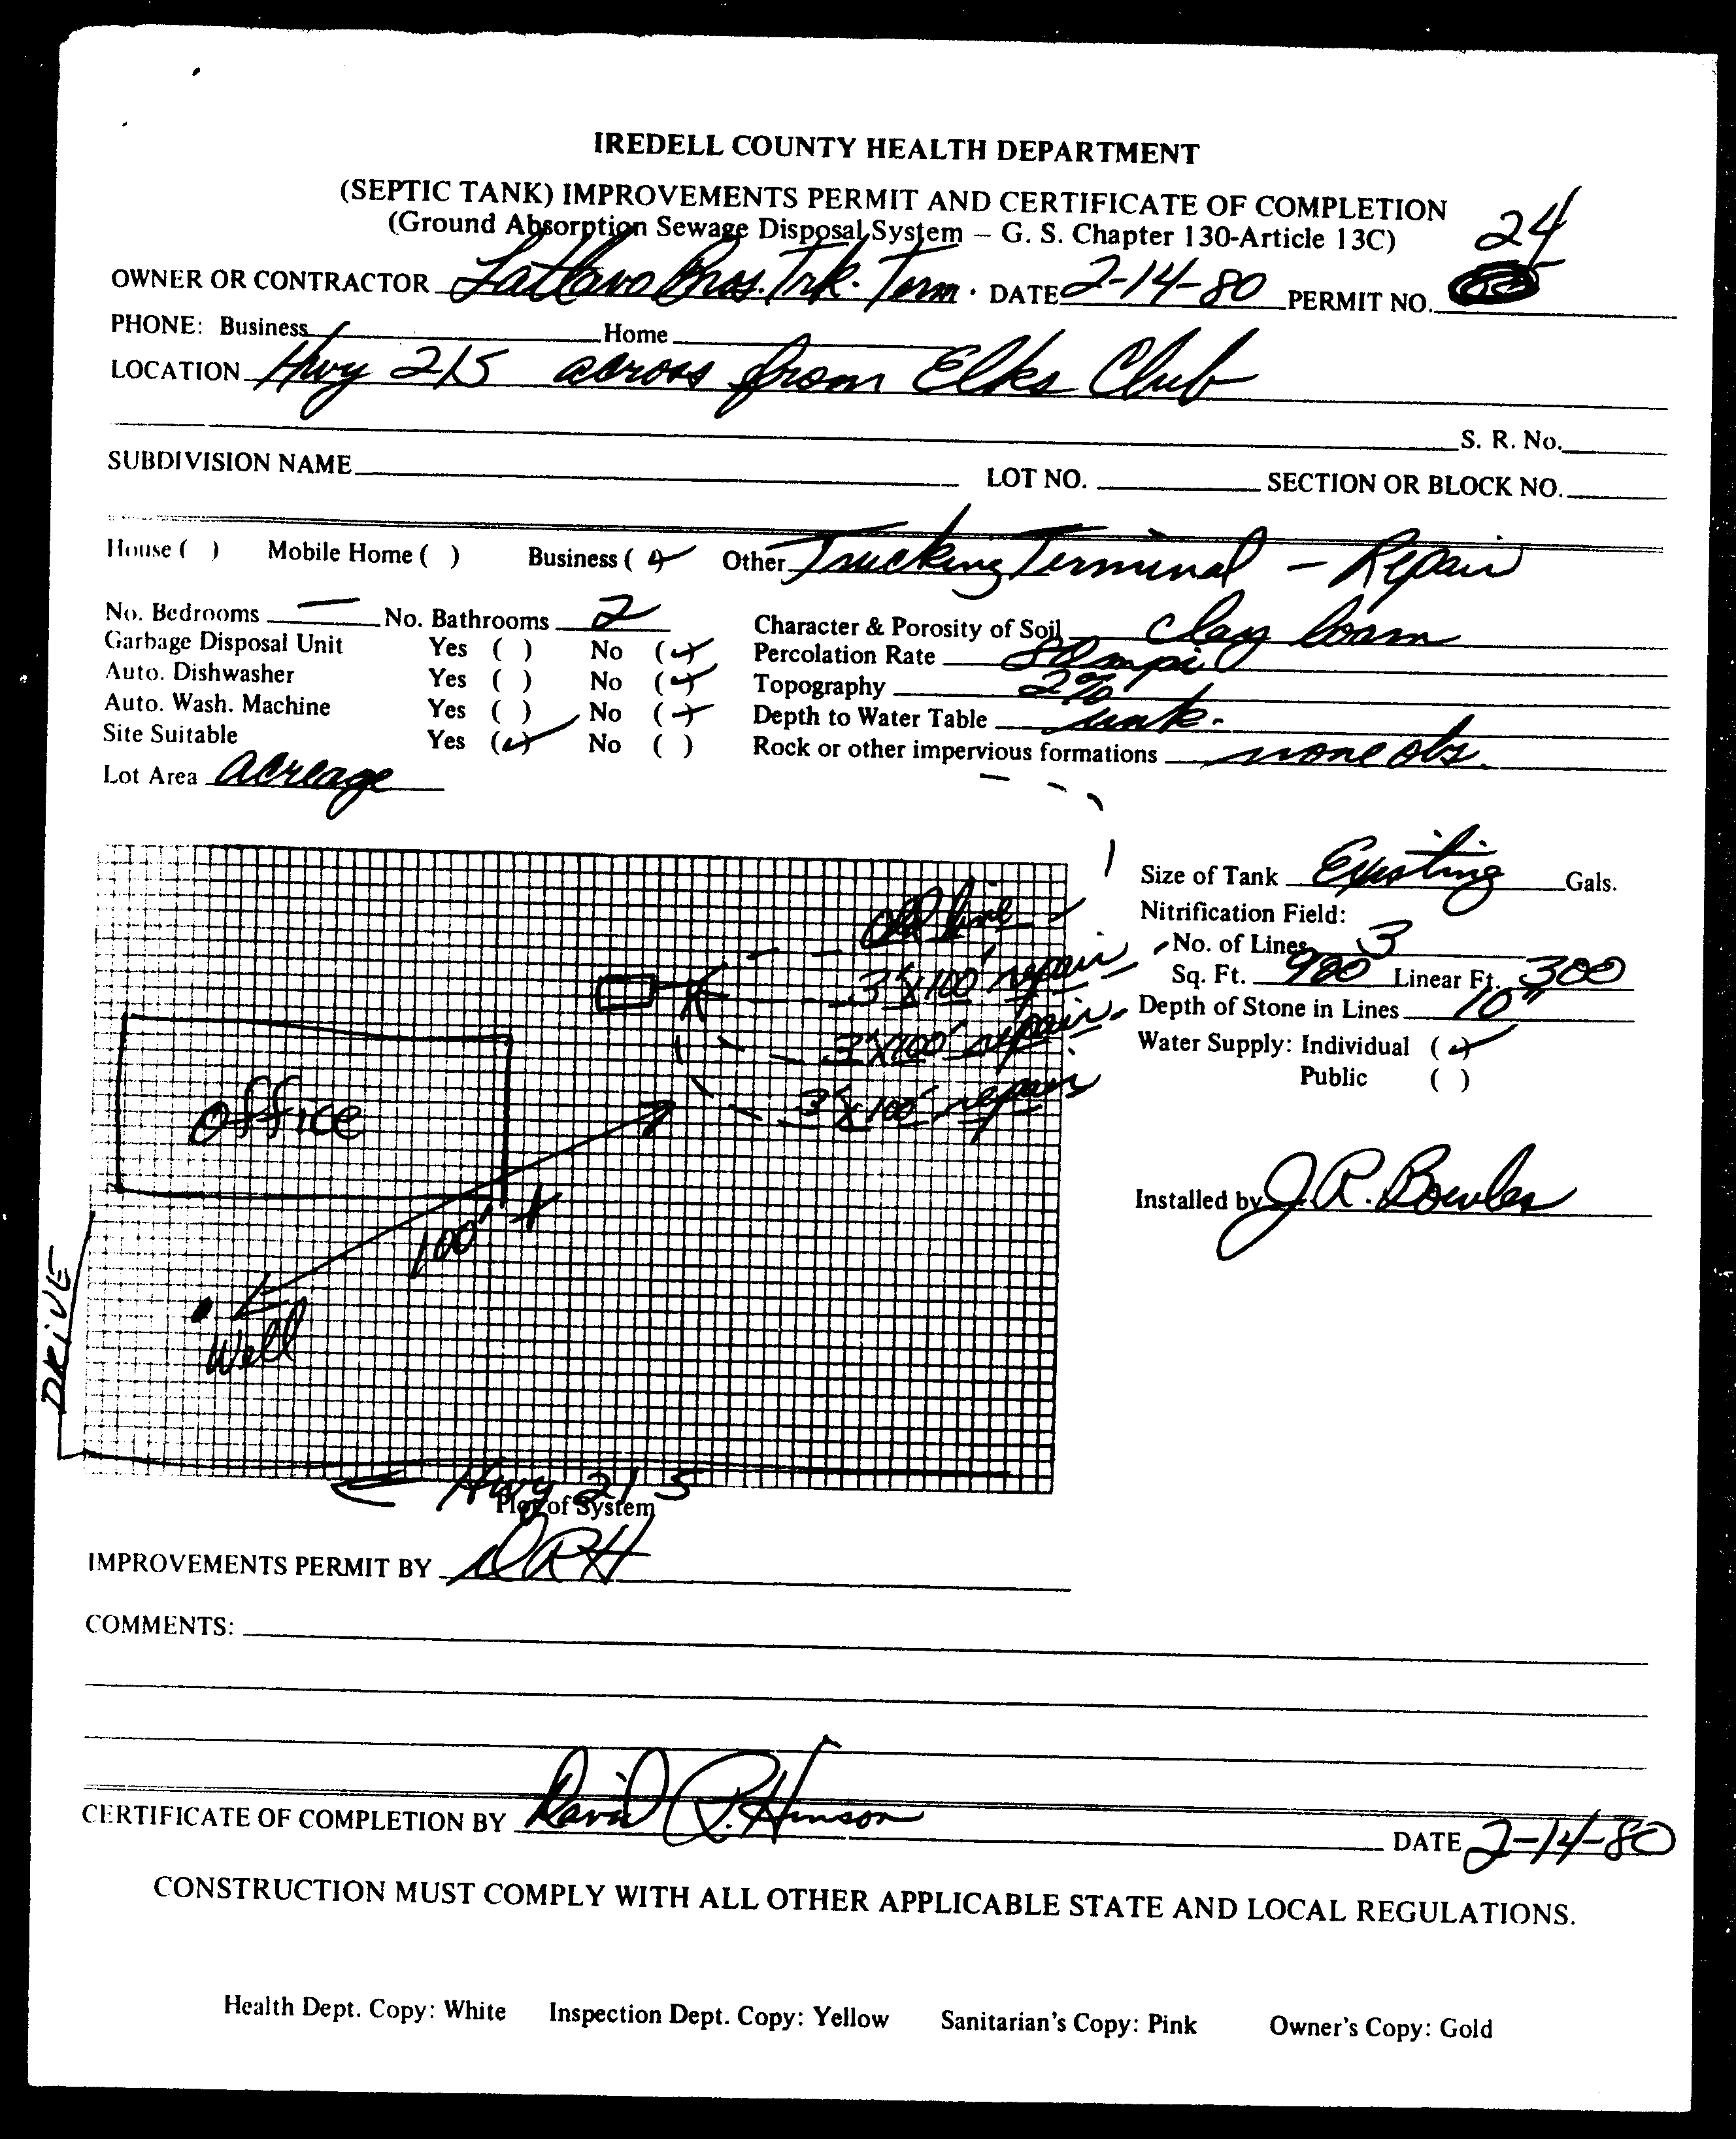 IREDELL COUNTY HEALTH DEPARTMENT
(SEPTIC TANK) IMPROVEMENTS PERMIT AND CERTIFICATE OF COMPLETION
(Ground Absorption Sewage Disposal System – G. S. Chapter 130-Article 13C)
24
OWNER OR CONTRACTOR Bros. Trk. Term. DATE 2-14-80 PERMIT NO.
PHONE: Business Home
LOCATION Hwy 21S across from Elks Club
S. R. No.
SUBDIVISION NAME LOT NO. SECTION OR BLOCK NO.
House ( ) Mobile Home ( ) Business (✓) Other Trucking Terminal – Repair
No. Bedrooms — No. Bathrooms 2 Character & Porosity of Soil clay loam
Garbage Disposal Unit Yes ( ) No (✓) Percolation Rate 80 mpi
Auto. Dishwasher Yes ( ) No (✓) Topography 2%
Auto. Wash. Machine Yes ( ) No (✓) Depth to Water Table unk.
Site Suitable Yes (✓) No ( ) Rock or other impervious formations none obs.
Lot Area acreage
Size of Tank Existing Gals.
Nitrification Field:
No. of Lines 3
Sq. Ft. 900 Linear Ft. 300
Depth of Stone in Lines 10"
Water Supply: Individual (✓)
Public ( )
Installed by J.R. Bowles
old line
3'x100' repair
3'x100' repair
3'x100' repair
office
100' +
Well
DRIVE
Hwy 21 S
Plot of System
IMPROVEMENTS PERMIT BY DRH
COMMENTS:
CERTIFICATE OF COMPLETION BY David R. Hinson
DATE 2-14-80
CONSTRUCTION MUST COMPLY WITH ALL OTHER APPLICABLE STATE AND LOCAL REGULATIONS.
Health Dept. Copy: White Inspection Dept. Copy: Yellow Sanitarian's Copy: Pink Owner's Copy: Gold